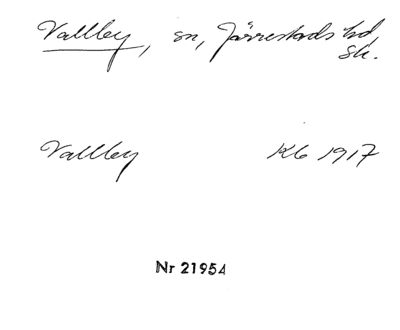 Vallby, sn, Järrestads hd,
Sk.
Vallby Kb 1917
Nr 21954